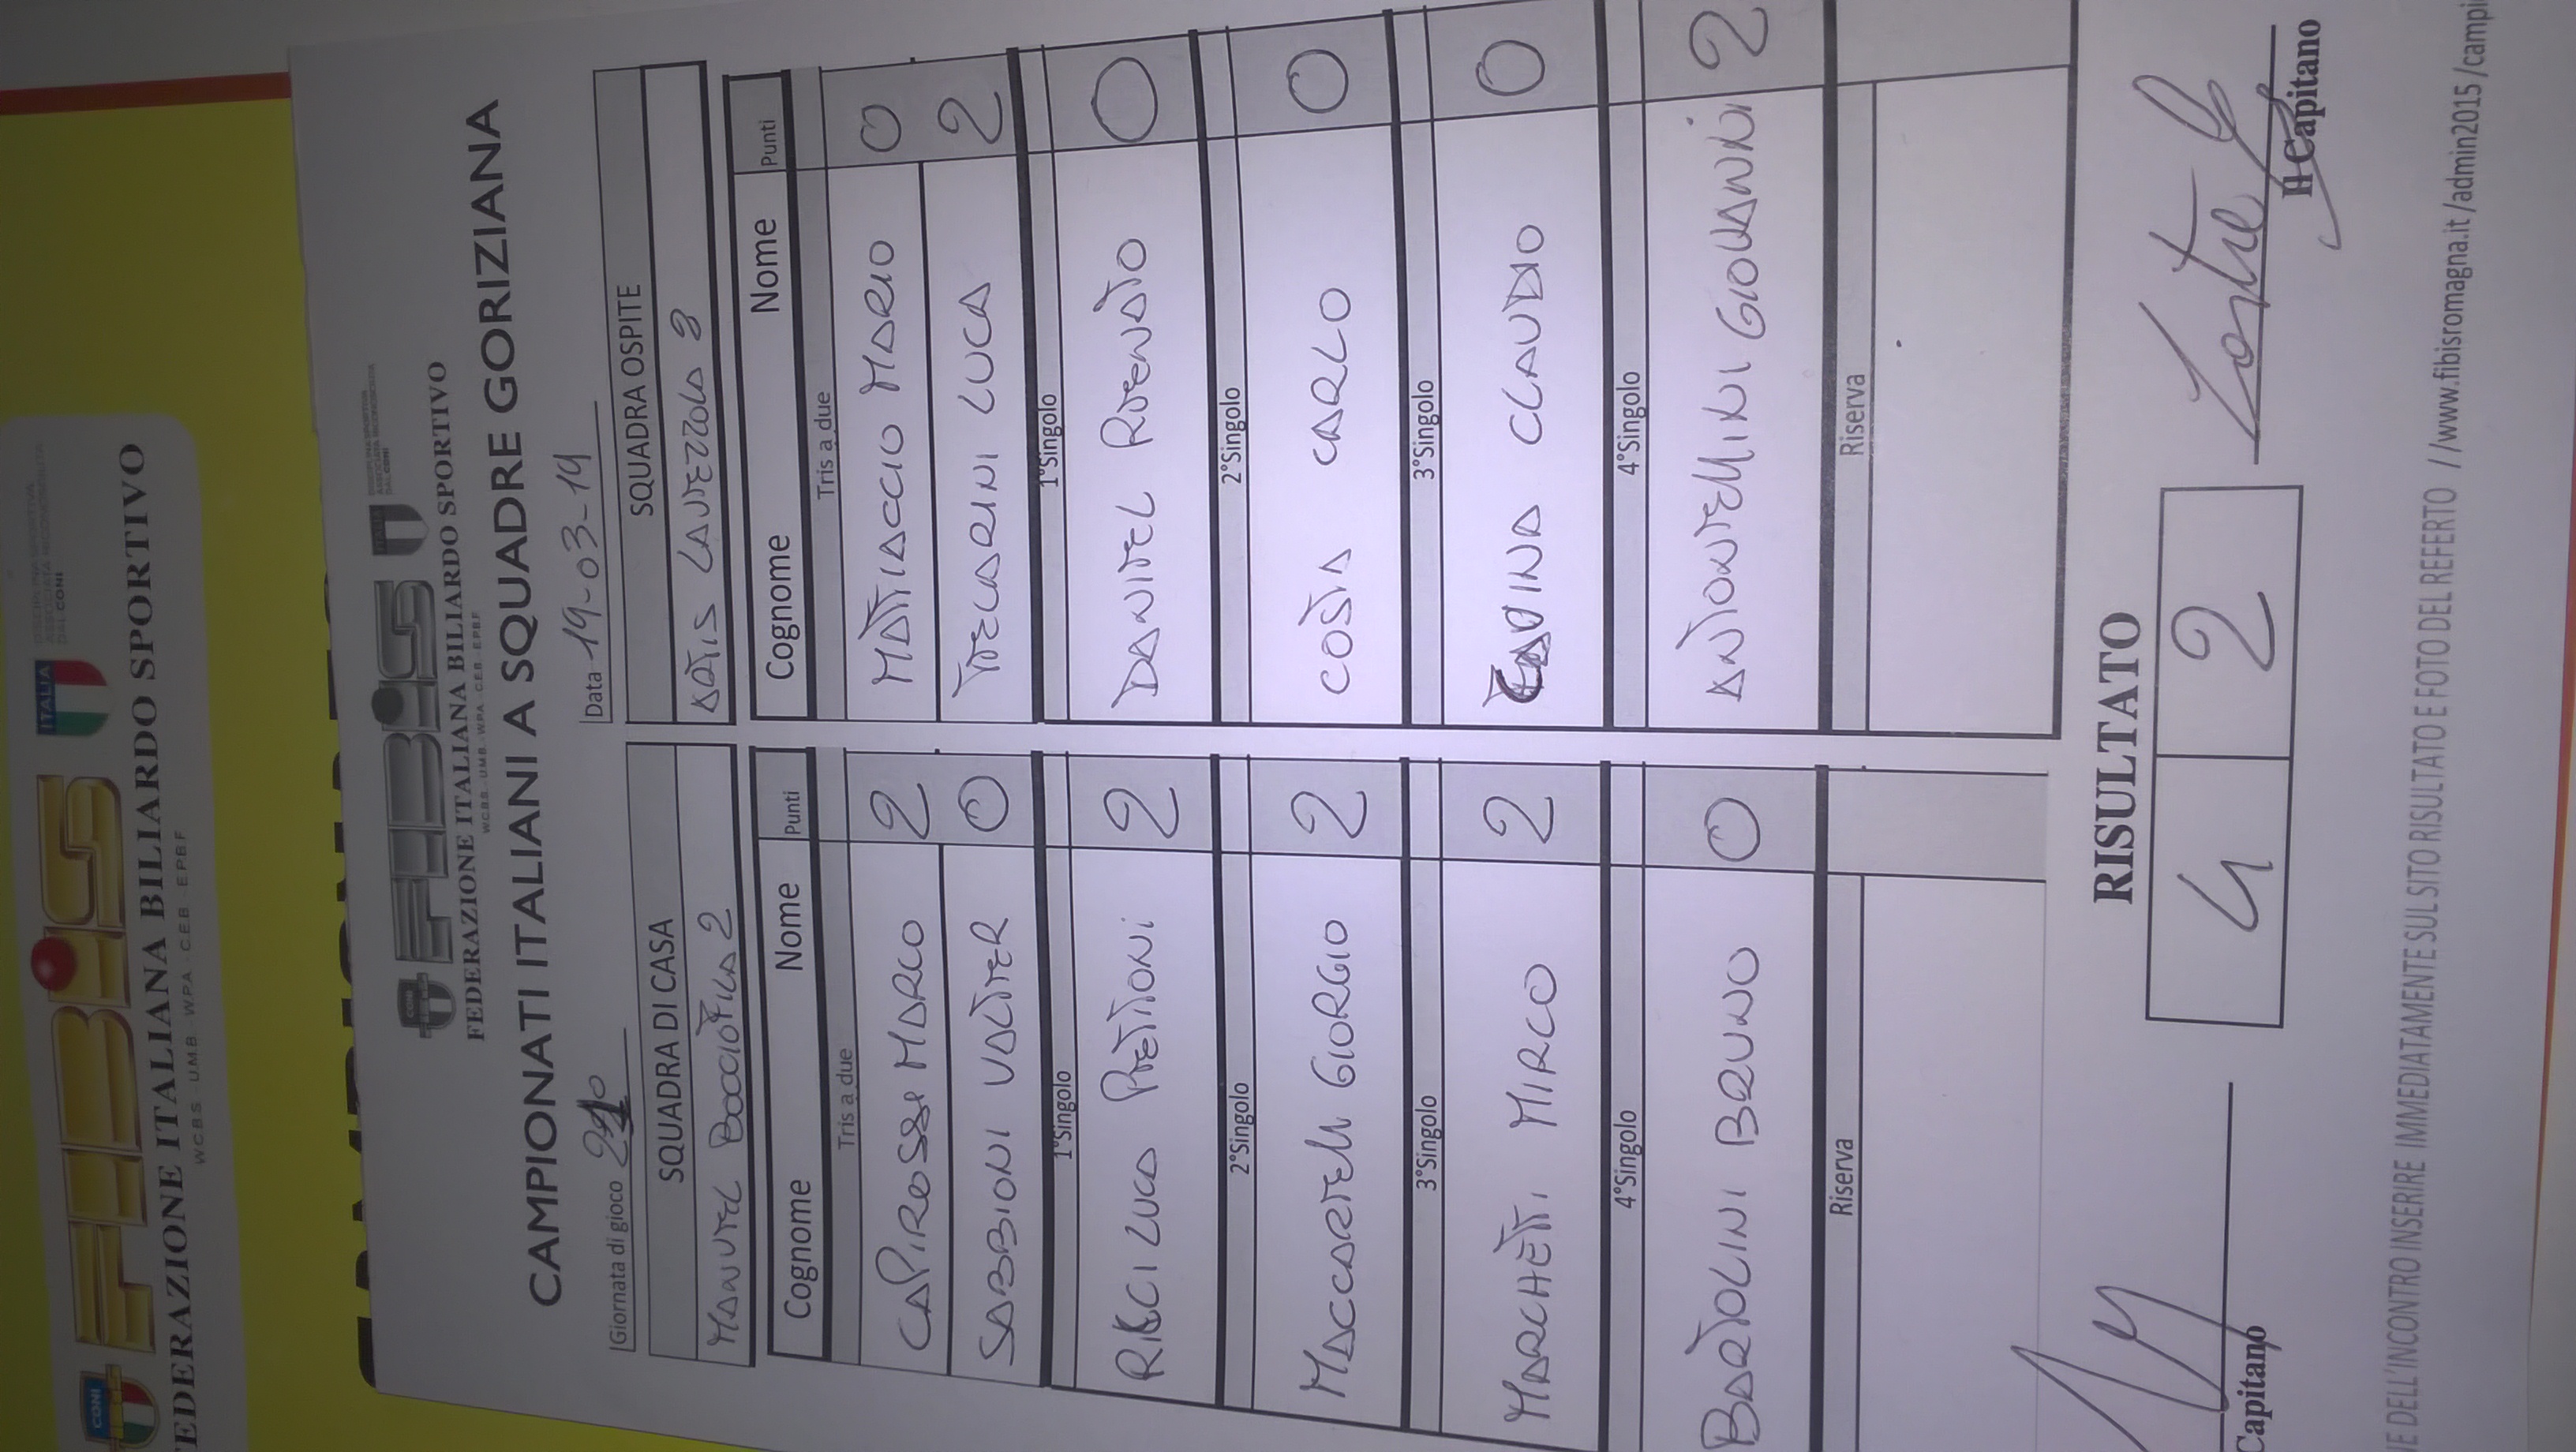 ITALIA
DISCIPLINA SPORTIVA
ASSOCIATA RICONOSCIUTA
DAL CONI
CONI
FIBiS
FEDERAZIONE ITALIANA BILIARDO SPORTIVO
W.C.B.S. U.M.B. - W.P.A. - C.E.B. - E.P.B.F
CONI
FIBiS
ITALIA
DISCIPLINA SPORTIVA
ASSOCIATA RICONOSCIUTA
DAL CONI
FEDERAZIONE ITALIANA BILIARDO SPORTIVO
W.C.B.S. - U.M.B. - W.P.A. - C.E.B. - E.P.B.F
CAMPIONATI ITALIANI A SQUADRE GORIZIANA
Giornata di gioco
Data 19-03-19
SQUADRA DI CASA
MANUEL BOCCIOFILA 2
SQUADRA OSPITE
LAVEZZOLA 3
Cognome Nome Punti
Tris a due
CAPIROSSI MARCO 2
SABBIONI VALTER 0
1°Singolo
RICCI LUCA PIETTONI 2
2°Singolo
MACCARELLI GIORGIO 2
3°Singolo
MARCHETTI MIRCO 2
4°Singolo
BARTOLINI BRUNO 0
Riserva
Cognome Nome Punti
Tris a due
MATTIACCIO MARIO 0
TECLARINI LUCA 2
1°Singolo
DANIEL RENATO 0
2°Singolo
COSTA CARLO 0
3°Singolo
CLAUDIO 0
4°Singolo
ANTONELLINI GIOVANNI 2
Riserva
RISULTATO
4 2
Capitano
Il Capitano
E DELL'INCONTRO INSERIRE IMMEDIATAMENTE SUL SITO RISULTATO E FOTO DEL REFERTO //www.fibisromagna.it/admin2015/campi